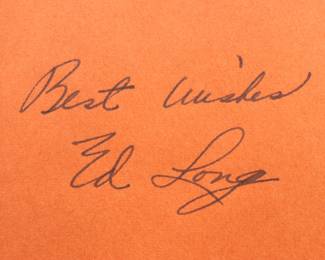 Best Wishes
Ed Long